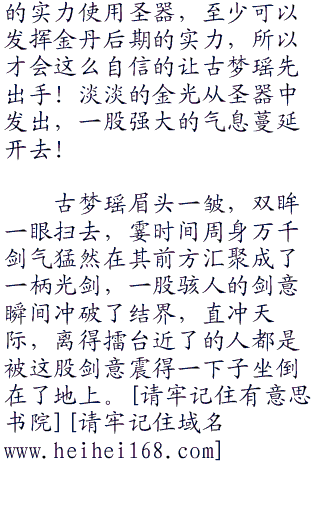 的实力使用圣器，至少可以
发挥金丹后期的实力，所以
才会这么自信的让古梦瑶先
出手！淡淡的金光从圣器中
发出，一股强大的气息蔓延
开去！
古梦瑶眉头一皱，双眸
一眼扫去，霎时间周身万千
剑气猛然在其前方汇聚成了
一柄光剑，一股骇人的剑意
瞬间冲破了结界，直冲天
际，离得擂台近了的人都是
被这股剑意震得一下子坐倒
在了地上。[请牢记住有意思
书院][请牢记住域名
www.heihei168.com]